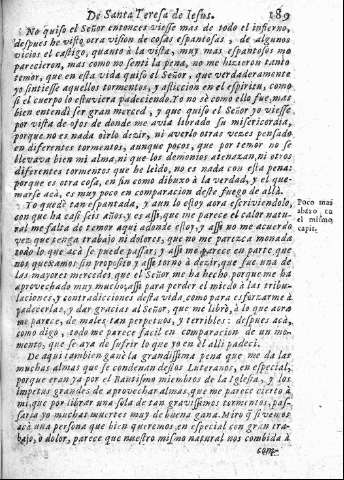 De Santa Teresa de Iesus. 189
No quiso el Señor entonces viesse mas de todo el infierno,
despues he visto otra vision de cosas espantosas, de algunos
vicios el castigo, quanto à la vista, muy mas espantosos me
parecieron, mas como no senti la pena, no me hizieron tanto
temor, que en esta vida quiso el Señor, que verdaderamente
yo sintiesse aquellos tormentos, y afliccion en el espiritu, como
si el cuerpo lo estuviera padeciendo. Yo no sè como ello fue, mas
bien entendi ser gran merced, y que quiso el Señor yo viesse
por vista de ojos de donde me avia librado su misericordia,
porque no es nada oirlo dezir, ni averlo otras vezes pensado
en diferentes tormentos, aunque pocos, que por temor no se
llevava bien mi alma, ni que los demonios atenazan, ni otros
diferentes tormentos que he leido, no es nada con esta pena:
porque es otra cosa, en fin como dibuxo à la verdad, y el que-
marse acà, es muy poco en comparacion deste fuego de allà.
Yo quedè tan espantada, y aun lo estoy aora escriviendolo,
con que ha casi seis años, y es assi, que me parece el calor natu-
ral me falta de temor aqui adonde estoy, y assi no me acuerdo
vez que tenga trabajo ni dolores, que no me parezca nonada
todo lo que acà se puede passar, y assi me parece en parte que
nos quexamos sin proposito y assi torno à dezir, que fue una de
las mayores mercedes que el Señor me ha hecho, porque me ha
aprovechado muy mucho, assi para perder el miedo à las tribu-
laciones, y contradicciones desta vida, como para esforzarme à
padecerlas, y dar gracias al Señor, que me librò, à lo que aora
me parece, de males tan perpetuos, y terribles: despues acà,
como digo, todo me parece facil en comparacion de un mo-
mento, que se aya de sufrir lo que yo en èl alli padeci.
De aqui tambien ganè la grandissima pena que me da las
muchas almas que se condenan destos Luteranos, en especial,
porque eran ya por el Bautismo miembros de la Iglesia, y los
impetus grandes de aprovechar almas, que me parece cierto à
mi, que por librar una sola de tan gravissimos tormentos, pas-
saria yo muchas muertes muy de buena gana. Miro q̃ si vemos
acà una persona que bien queremos, en especial con gran tra-
bajo, ò dolor, parece que nuestro mismo natural nos combida à
com-
Poco mas
abaxo en
el mismo
capit.